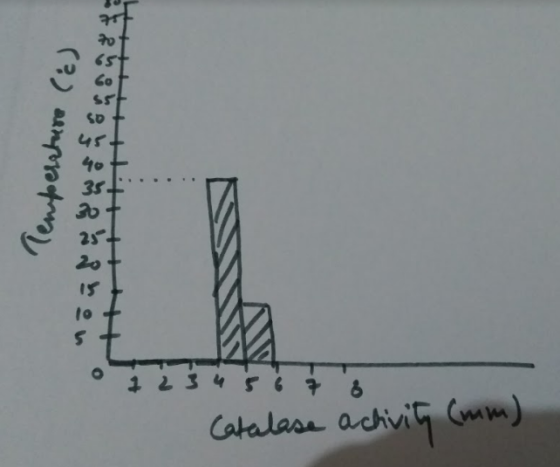 80
75
70
65
60
55
50
45
40
35
30
25
20
15
10
5
0
Temperature (°c)
1 2 3 4 5 6 7 8
Catalase activity (mm)